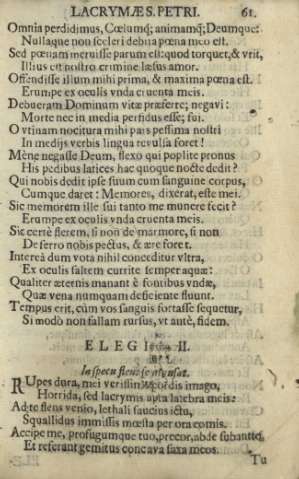 LACRYMÆ S. PETRI. 61.
Omnia perdidimus, Cœlumq; animamq; Deumque:
Nullaque non sceleri debita pœna meo est.
Sed pœnam meruisse parum est: quod torquet, & vrit,
Illius est nostro crimine læsus amor.
Offendisse illum mihi prima, & maxima pœna est.
Erumpe ex oculis vnda cruenta meis.
Debueram Dominum vitæ præferre; negavi:
Morte nec in media perfidus esse; fui.
O vtinam nocitura mihi pars pessima nostri
In medijs verbis lingua revulsa foret!
Mène negasse Deum, flexo qui poplite pronus
His pedibus latices hac quoque nocte dedit?
Qui nobis dedit ipse suum cum sanguine corpus,
Cumque daret: Memores, dixerat, este mei.
Sic memorem ille sui tanto me munere fecit?
Erumpe ex oculis vnda cruenta meis.
Sic certè flerem, si non de marmore, si non
De ferro nobis pectus, & ære foret.
Intereà dum vota nihil conceditur vltra,
Ex oculis saltem currite semper aquæ:
Qualiter æternis manant è fontibus vndæ,
Quæ vena numquam deficiente fluunt.
Tempus erit, cùm vos sanguis fortasse sequetur,
Si modò non fallam rursus, vt antè, fidem.
ELEGIA II.
In specu flens se
RUpes dura, mei verissima cordis imago,
Horrida, sed lacrymis apta latebra meis:
Ad te flens venio, lethali saucius ictu,
Squallidus immissis mœsta per ora comis.
Accipe me, profugumque tuo, precor, abde sub antro,
Et referant gemitus concava saxa meos.
Tu